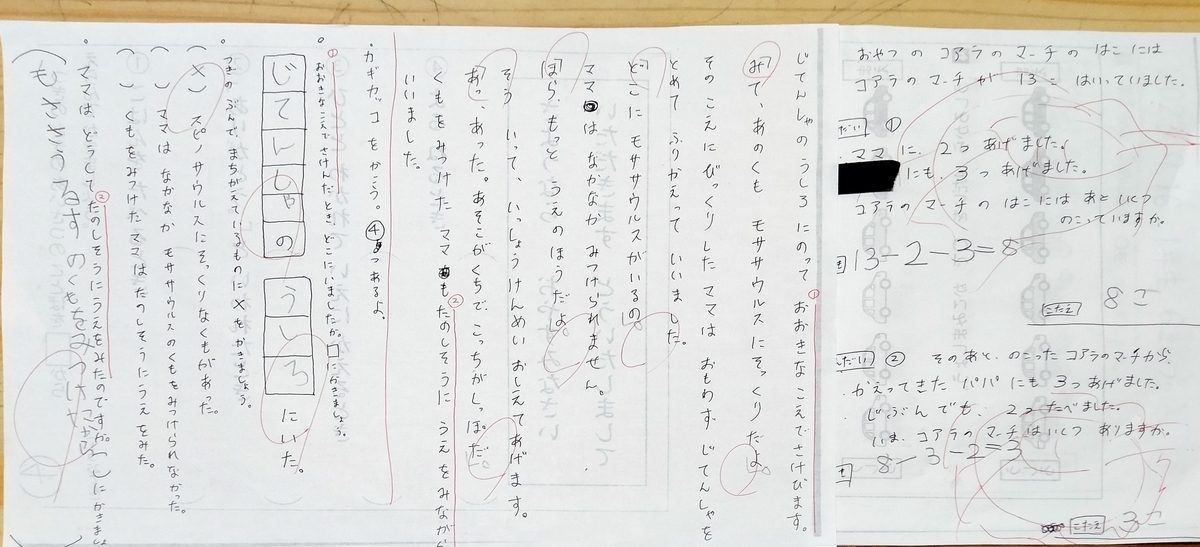 じてんしゃの うしろに のって おおきな こえで さけびます。①
「みて、あの くも モササウルスに そっくりだよ。」
その こえに びっくりした ママは おもわず じてんしゃを
とめて ふりかえって いいました。
「どこに モササウルスが いるの。」
ママは なかなか みつけられません。
「ほら、もっと うえの ほうだよ。」
そう いって、いっしょうけんめい おしえて あげます。
「あっ、あった。あそこが くちで、こっちが しっぽだ。」
くもを みつけた ママも たのしそうに うえを みながら ②
いいました。
・カギカッコを かこう。④つ あるよ。
。①おおきな こえで さけんだとき、どこに いましたか。口に かきましょう。
じてんしゃの うしろ にいた。
。つぎの ぶんで、まちがえている ものに ×を かきましょう。
(×) スピノサウルスに そっくりな くもが あった。
( ) ママは なかなか モササウルスの くもを みつけられなかった。
( ) くもを みつけた ママは たのしそうに うえを みた。
。ママは、どうして ②たのしそうに うえを みたのですか。( )に かきましょ
おやつの コアラの マーチの はこには
コアラの マーチが 13こ はいって いました。
だい ①
・ママに、2つ あげました。
にも、3つ あげました。
コアラの マーチの はこには あと いくつ
のこって いますか。
13-2-3=8
こたえ 8こ
だい ② そのあと、のこった コアラのマーチから
かえってきた パパにも 3つ あげました。
じぶんでも、2つ たべました。
いま、コアラの マーチは いくつ ありますか。
8-3-2=3
こたえ 3こ